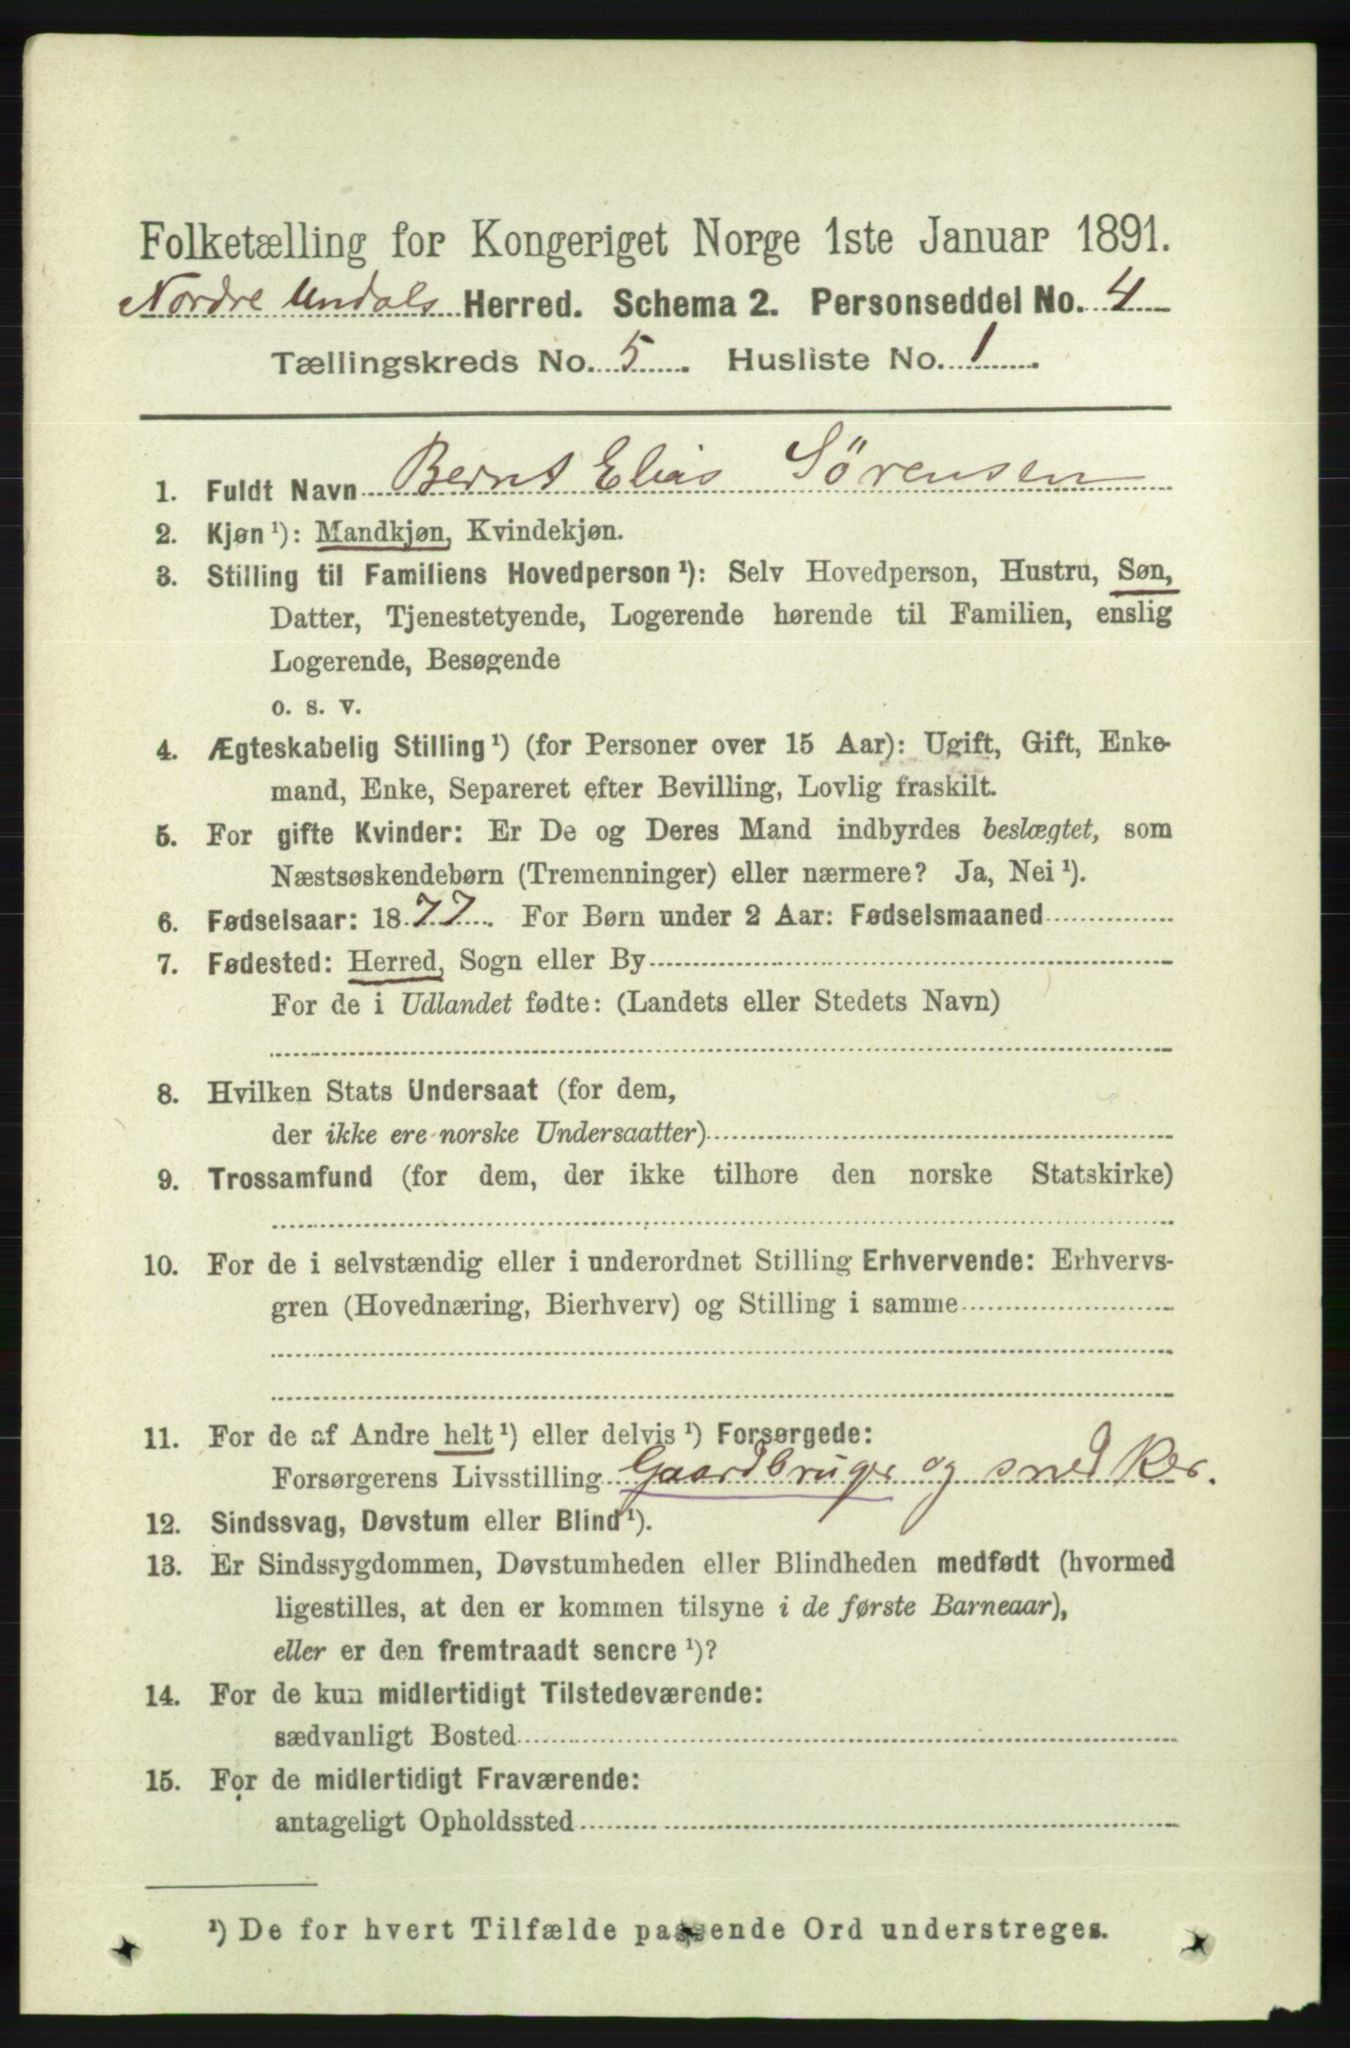 Folketælling for Kongeriget Norge 1ste Januar 1891.
Nordre Undals Herred. Schema 2. Personseddel No. 4
Tællingskreds No. 5. Husliste No. 1.
1. Fuldt Navn Bernt Elias Sörensen
2. Kjøn¹): Mandkjøn, Kvindekjøn.
3. Stilling til Familiens Hovedperson¹): Selv Hovedperson, Hustru, Søn,
Datter, Tjenestetyende, Logerende hørende til Familien, enslig
Logerende, Besøgende
o. s. v.
4. Ægteskabelig Stilling¹) (for Personer over 15 Aar): Ugift, Gift, Enke-
mand, Enke, Separeret efter Bevilling, Lovlig fraskilt.
5. For gifte Kvinder: Er De og Deres Mand indbyrdes beslægtet, som
Næstsøskendebørn (Tremenninger) eller nærmere? Ja, Nei¹).
6. Fødselsaar: 1877. For Børn under 2 Aar: Fødselsmaaned
7. Fødested: Herred, Sogn eller By
For de i Udlandet fødte: (Landets eller Stedets Navn)
8. Hvilken Stats Undersaat (for dem,
der ikke ere norske Undersaatter)
9. Trossamfund (for dem, der ikke tilhøre den norske Statskirke)
10. For de i selvstændig eller i underordnet Stilling Erhvervende: Erhvervs-
gren (Hovednæring, Bierhverv) og Stilling i samme
11. For de af Andre helt¹) eller delvis¹) Forsørgede:
Forsørgerens Livsstilling Gaardbruger og snedker.
12. Sindssvag, Døvstum eller Blind¹).
13. Er Sindssygdommen, Døvstumheden eller Blindheden medfødt (hvormed
ligestilles, at den er kommen tilsyne i de første Barneaar),
eller er den fremtraadt senere¹)?
14. For de kun midlertidigt Tilstedeværende:
sædvanligt Bosted
15. For de midlertidigt Fraværende:
antageligt Opholdssted
¹) De for hvert Tilfælde passende Ord understreges.